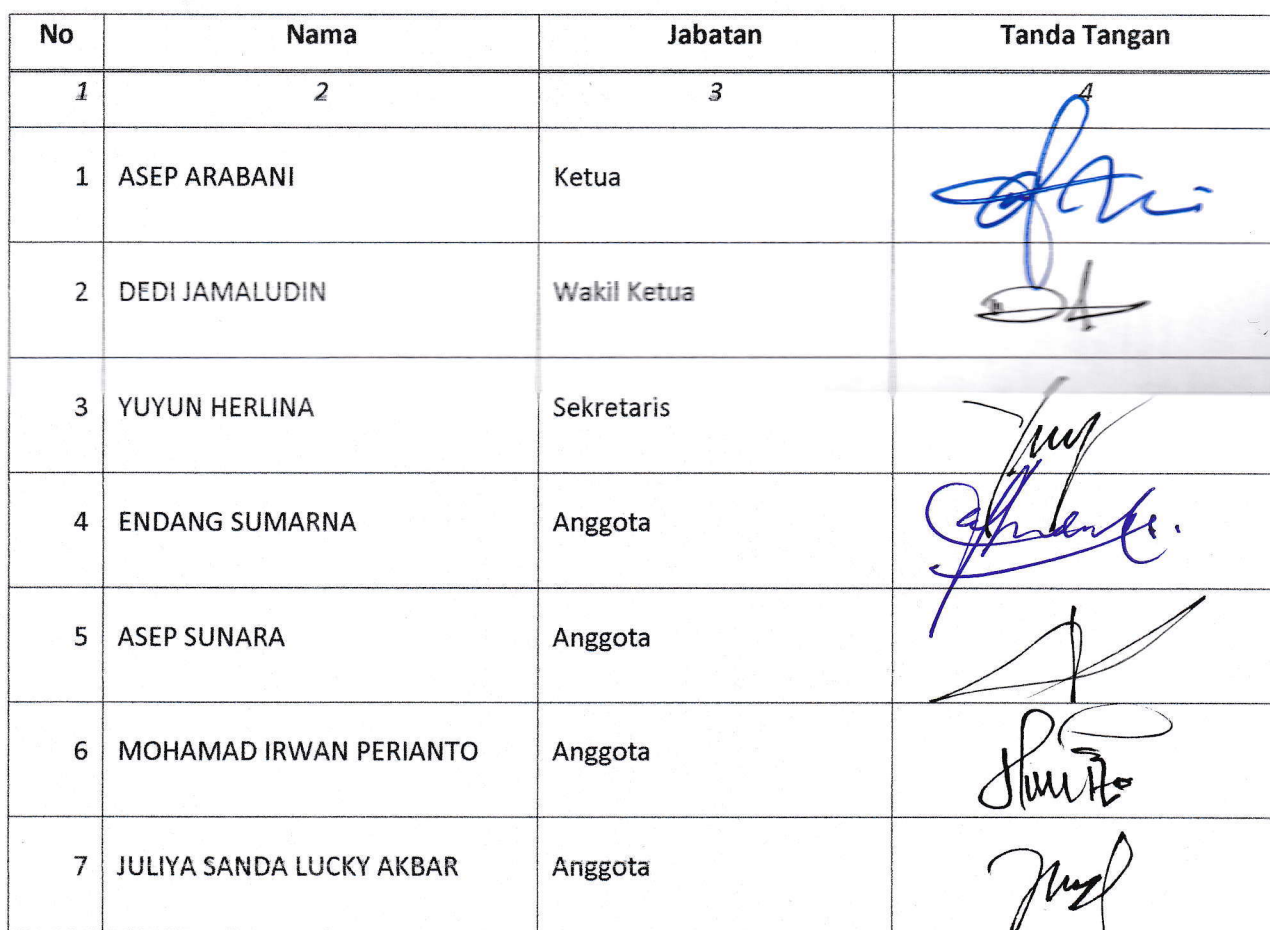 No Nama Jabatan Tanda Tangan
1 2 3 4
1 ASEP ARABANI Ketua
2 DEDI JAMALUDIN Wakil Ketua
3 YUYUN HERLINA Sekretaris
4 ENDANG SUMARNA Anggota
5 ASEP SUNARA Anggota
6 MOHAMAD IRWAN PERIANTO Anggota
7 JULIYA SANDA LUCKY AKBAR Anggota